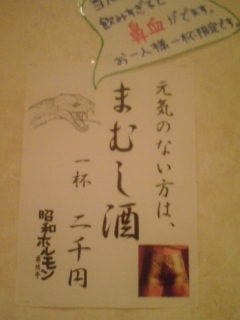 飲みすぎると
鼻血がでます。
お一人様一杯限定です。
元気のない方は、
まむし酒
一杯 二千円
昭和ホルモン